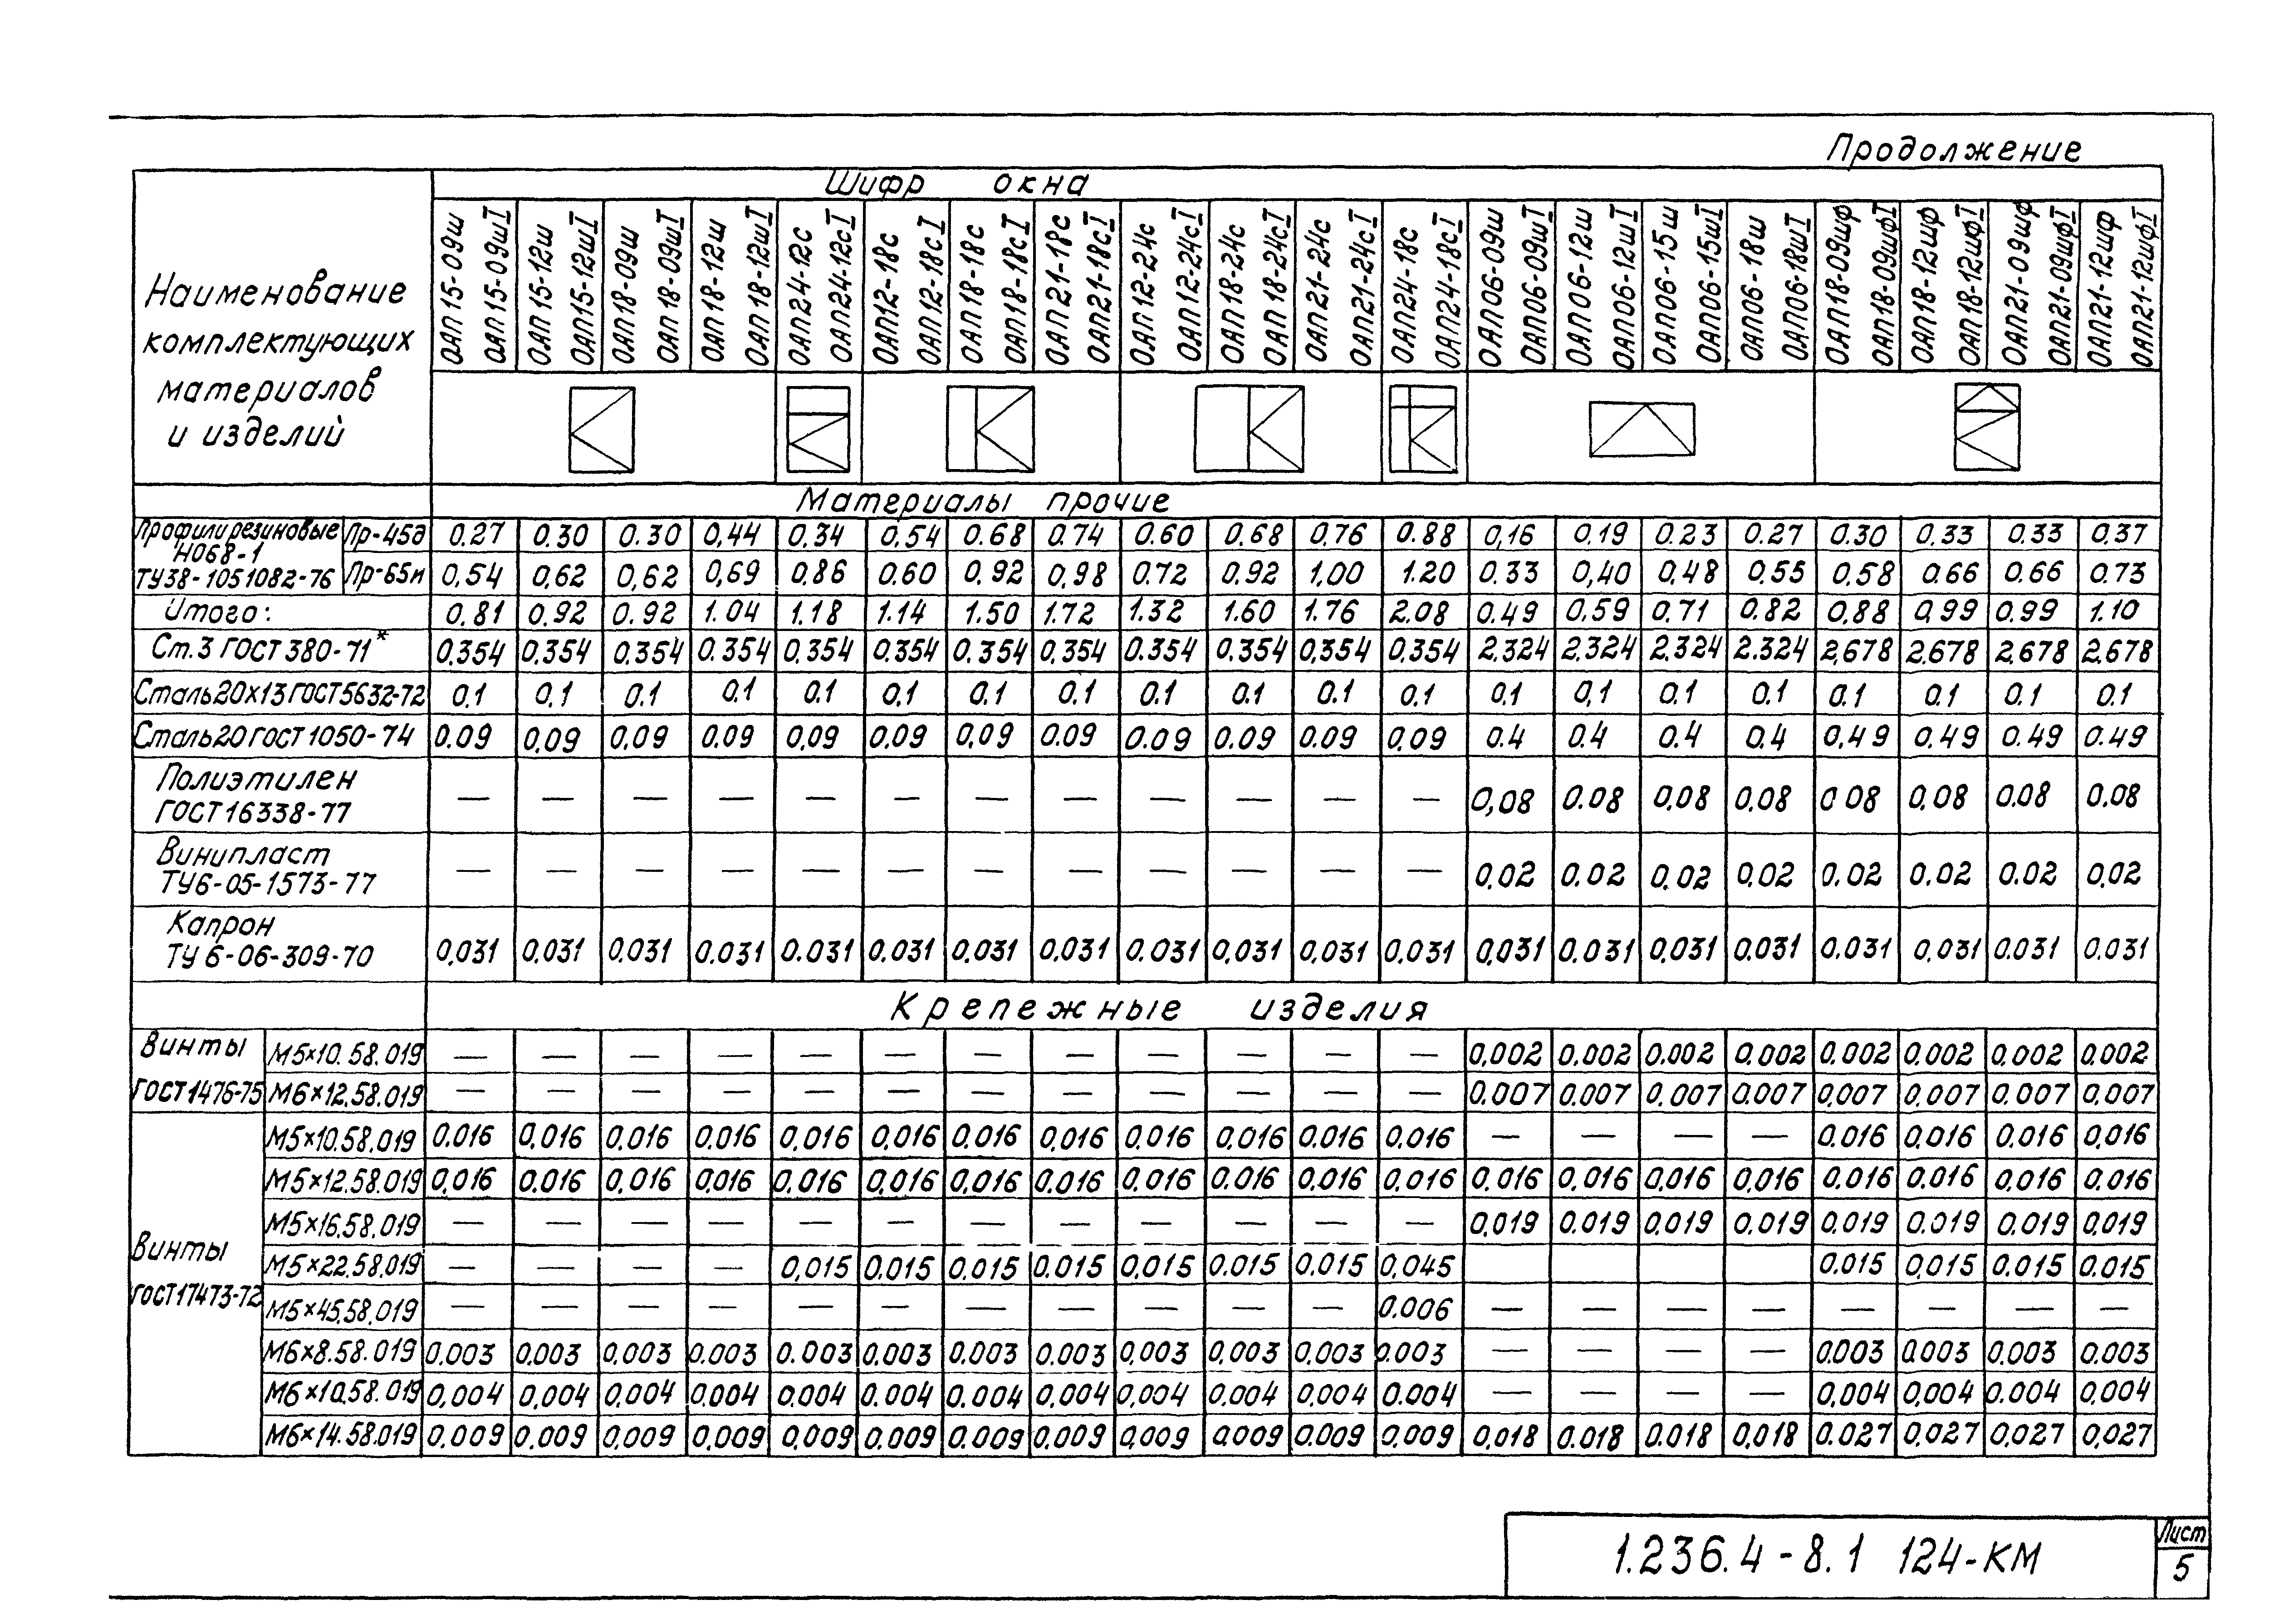 Продолжение
Наименование
комплектующих
материалов
и изделий
Шифр окна
ОАП 15-09ш
ОАП 15-09шI
ОАП 15-12ш
ОАП15-12шI
ОАП18-09ш
ОАП 18-09шI
ОАП 18-12ш
ОАП 18-12шI
ОАП24-12с
ОАП24-12сI
ОАП12-18с
ОАП12-18сI
ОАП 18-18с
ОАП18-18сI
ОАП21-18с
ОАП21-18сI
ОАП 12-24с
ОАП 12-24сI
ОАП 18-24с
ОАП 18-24сI
ОАП 21-24с
ОАП21-24сI
ОАП24-18с
ОАП24-18сI
ОАП06-09ш
ОАП06-09шI
ОАП06-12ш
ОАП06-12шI
ОАП06-15ш
ОАП06-15шI
ОАП06-18ш
ОАП06-18шI
ОАП18-09шф
ОАП18-09шфI
ОАП18-12шф
ОАП18-12шфI
ОАП21-09шф
ОАП21-09шфI
ОАП21-12шф
ОАП21-12шфI
Материалы прочие
Профили резиновые
Н068-1
ТУ38-1051082-76
Пр-45д 0.27 0.30 0.30 0,44 0.34 0.54 0.68 0.74 0.60 0.68 0.76 0.88 0,16 0.19 0.23 0.27 0.30 0.33 0.33 0,37
Пр-65н 0,54 0,62 0,62 0,69 0.86 0.60 0.92 0,98 0.72 0.92 1,00 1.20 0.33 0,40 0,48 0.55 0,58 0.66 0.66 0.73
Итого: 0.81 0.92 0.92 1.04 1.18 1.14 1.50 1.72 1.32 1.60 1.76 2.08 0.49 0.59 0.71 0.82 0.88 0,99 0.99 1.10
Ст.3 ГОСТ 380-71* 0.354 0.354 0.354 0.354 0.354 0.354 0.354 0.354 0.354 0.354 0,354 0.354 2.324 2.324 2.324 2.324 2,678 2.678 2,678 2.678
Сталь20х13ГОСТ5632-72 0.1 0.1 0.1 0.1 0.1 0.1 0.1 0.1 0.1 0.1 0.1 0.1 0.1 0,1 0.1 0.1 0.1 0.1 0.1 0.1
Сталь20ГОСТ1050-74 0.09 0,09 0,09 0.09 0,09 0.09 0,09 0.09 0.09 0.09 0.09 0,09 0.4 0.4 0.4 0.4 0,49 0.49 0.49 0.49
Полиэтилен
ГОСТ16338-77 — — — — — — — — — — — — 0,08 0.08 0,08 0,08 0 08 0,08 0.08 0.08
Винипласт
ТУ6-05-1573-77 — — — — — — — — — — — — 0,02 0.02 0.02 0,02 0.02 0.02 0.02 0,02
Капрон
ТУ 6-06-309-70 0,031 0.031 0.031 0.031 0.031 0.031 0.031 0.031 0.031 0,031 0,031 0.031 0,031 0.031 0,031 0.031 0.031 0.031 0.031 0.031
Крепежные изделия
Винты
ГОСТ1476-75
М5×10.58.019 — — — — — — — — — — — — 0,002 0.002 0.002 0.002 0.002 0.002 0.002 0.002
М6×12.58.019 — — — — — — — — — — — — 0.007 0.007 0.007 0.007 0,007 0.007 0.007 0,007
Винты
ГОСТ17473-72
М5×10.58.019 0.016 0,016 0,016 0,016 0,016 0,016 0.016 0,016 0,016 0,016 0.016 0.016 — — — — 0.016 0,016 0.016 0,016
М5×12.58.019 0,016 0.016 0,016 0,016 0.016 0,016 0,016 0.016 0.016 0.016 0.016 0,016 0.016 0.016 0.016 0,016 0.016 0.016 0.016 0.016
М5×16.58.019 — — — — — — — — — — — — 0,019 0.019 0.019 0.019 0.019 0.019 0.019 0.019
М5×22.58.019 — — — — 0,015 0.015 0.015 0.015 0,015 0.015 0.015 0,045 0.015 0,015 0.015 0.015
М5×45.58.019 — — — — — — — — — — — 0.006 — — — — — — — —
М6×8.58.019 0.003 0.003 0,003 0.003 0.003 0.003 0.003 0.003 0,003 0,003 0.003 0.003 — — — — 0.003 0.003 0.003 0.003
М6×10.58.019 0,004 0.004 0.004 0.004 0.004 0.004 0.004 0.004 0,004 0.004 0.004 0.004 — — — — 0,004 0,004 0.004 0.004
М6×14.58.019 0.009 0.009 0,009 0,009 0,009 0.009 0.009 0.009 0,009 0.009 0.009 0,009 0,018 0.018 0.018 0,018 0.027 0,027 0,027 0,027
1.236.4-8.1 124-КМ
Лист
5